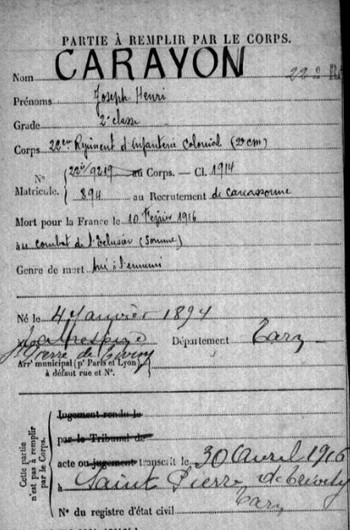 PARTIE À REMPLIR PAR LE CORPS.
Nom CARAYON
Prénoms Joseph Henri
Grade 2e classe
Corps 22ème Régiment d'Infanterie Colonial
N° 9219 au Corps. — Cl. 1914
Matricule. 894 au Recrutement de Carcassonne
Mort pour la France le 10 Février 1916
au combat de l'Eclusier (Somme)
Genre de mort tué à l'ennemi
Né le 4 Janvier 1894
Département Tarn
Arr^t municipal (p^r Paris et Lyon)
à défaut rue et N°.
Cette partie
n'est pas à remplir
par le Corps.
Jugement rendu le
par le Tribunal de
acte ou jugement transcrit le 30 Avril 1916
à Saint Pierre de Trivisy
Tarn
N° du registre d'état civil